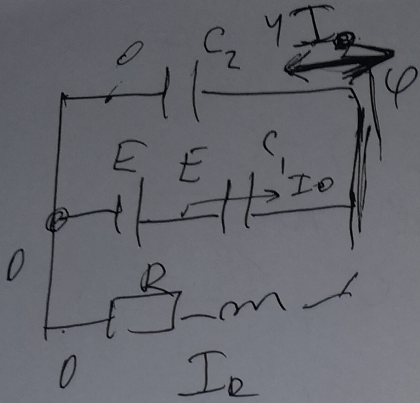 0 C₂ 4I₀
φ
E E C₁ I₀
0
R
0 I_R